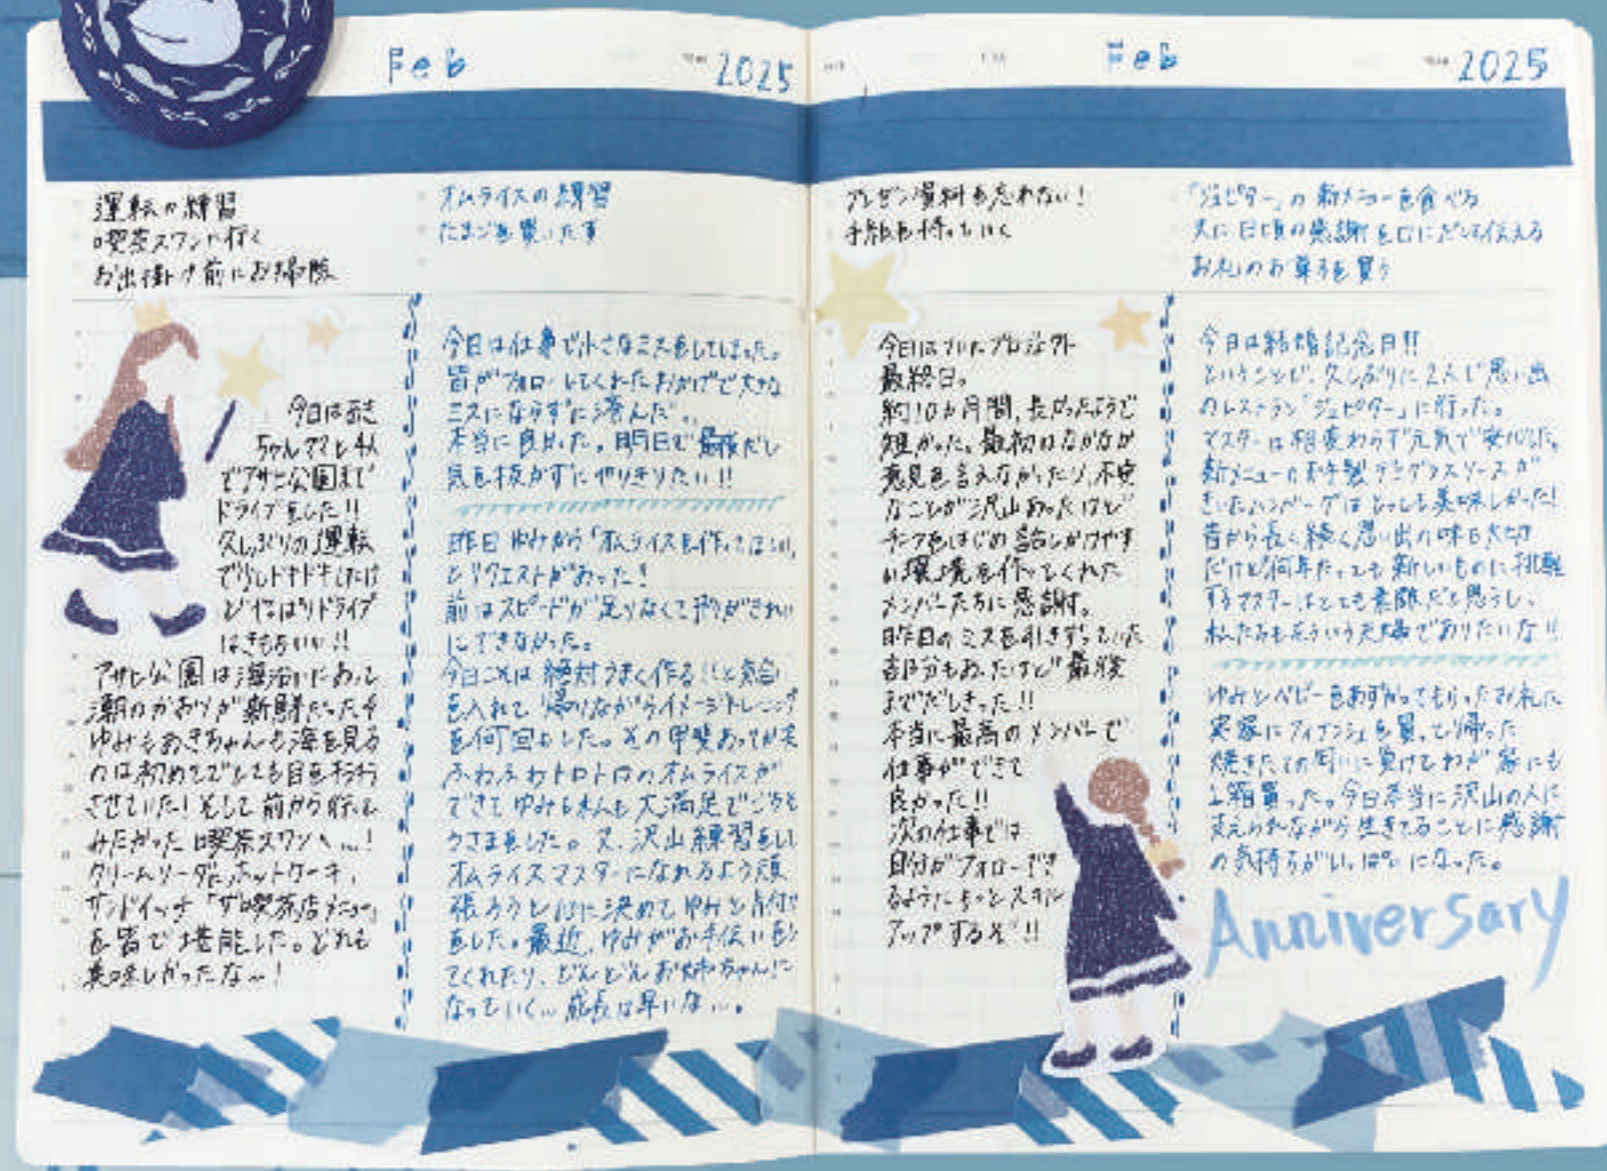 Feb
2025
運転の練習
喫茶スワンへ行く
お出掛け前にお掃除
今日はあき
ちゃんママと4人
でアサヒ公園まで
ドライブをした!!
久しぶりの運転
で少しドキドキしたけ
どやはりドライブ
はきもちいい!!
アサヒ公園は海沿いにあって
潮のかおりが新鮮だった
ゆみもあきちゃんも海を見る
のは初めてでとても目をキラキラ
させていた!そして前から行って
みたかった喫茶スワンへ…!
クリームソーダにホットケーキ、
サンドイッチ「ザ喫茶店メニュー」
を皆で堪能した。どれも
美味しかったな〜!
オムライスの練習
たまごを買いたす
今日は仕事で小さなミスをしてしまった。
皆がフォローしてくれたおかげで大きな
ミスにならずに済んだ…。
本当に良かった。明日で最後だし
気を抜かずにやりきりたい!!
昨日ゆみから「オムライスを作ってほしい」
とリクエストがあった!
前はスピードが足りなくて形がきれい
にできなかった。
今日こそは絶対うまく作る!!と気合い
を入れて帰りながらイメージトレーニング
を何回もした。その甲斐あってか
ふわふわトロトロのオムライスが
できてゆみも私も大満足でごちそ
うさまをした。又、沢山練習をし
オムライスマスターになれるよう頑
張ろうと心に決めてゆみと片付け
をした。最近、ゆみがお手伝いをし
てくれたり、どんどんお姉ちゃんに
なっていく…成長は早いな…。
Feb
2025
プレゼン資料を忘れない!
手紙を持っていく
今日はついにプロジェクト
最終日。
約10か月間、長かったようで
短かった。最初はなかなか
意見を言えなかったり、不安
なことが沢山あったけど
チーフをはじめ話しかけやす
い環境を作ってくれた
メンバーたちに感謝。
昨日のミスを引きずっていた
部分もあったけど最後
までだしきった!!
本当に最高のメンバーで
仕事ができて
良かった!!
次の仕事では
自分がフォローでき
るようにもっとスキル
アップするぞ!!
「ジュピター」の新メニューを食べる
夫に日頃の感謝を口にだして伝える
お礼のお菓子を買う
今日は結婚記念日!!
ということで、久しぶりに2人で思い出
のレストラン「ジュピター」に行った。
マスターは相変わらず元気で安心した。
新メニューのお手製デミグラスソースが
きいたハンバーグはとっても美味しかった!
昔から長く続く思い出の味も大切
だけど何年たっても新しいものに挑戦
するマスターはとても素敵だと思うし、
私たちもそういう夫婦でありたいな!!
ゆみとベビーをあずかってもらったお礼に
実家にフィナンシェを買って帰った
焼きたての匂いに負けてわが家にも
1箱買った。今日本当に沢山の人に
支えられながら生きてることに感謝
の気持ちがいっぱいになった。
Anniversary